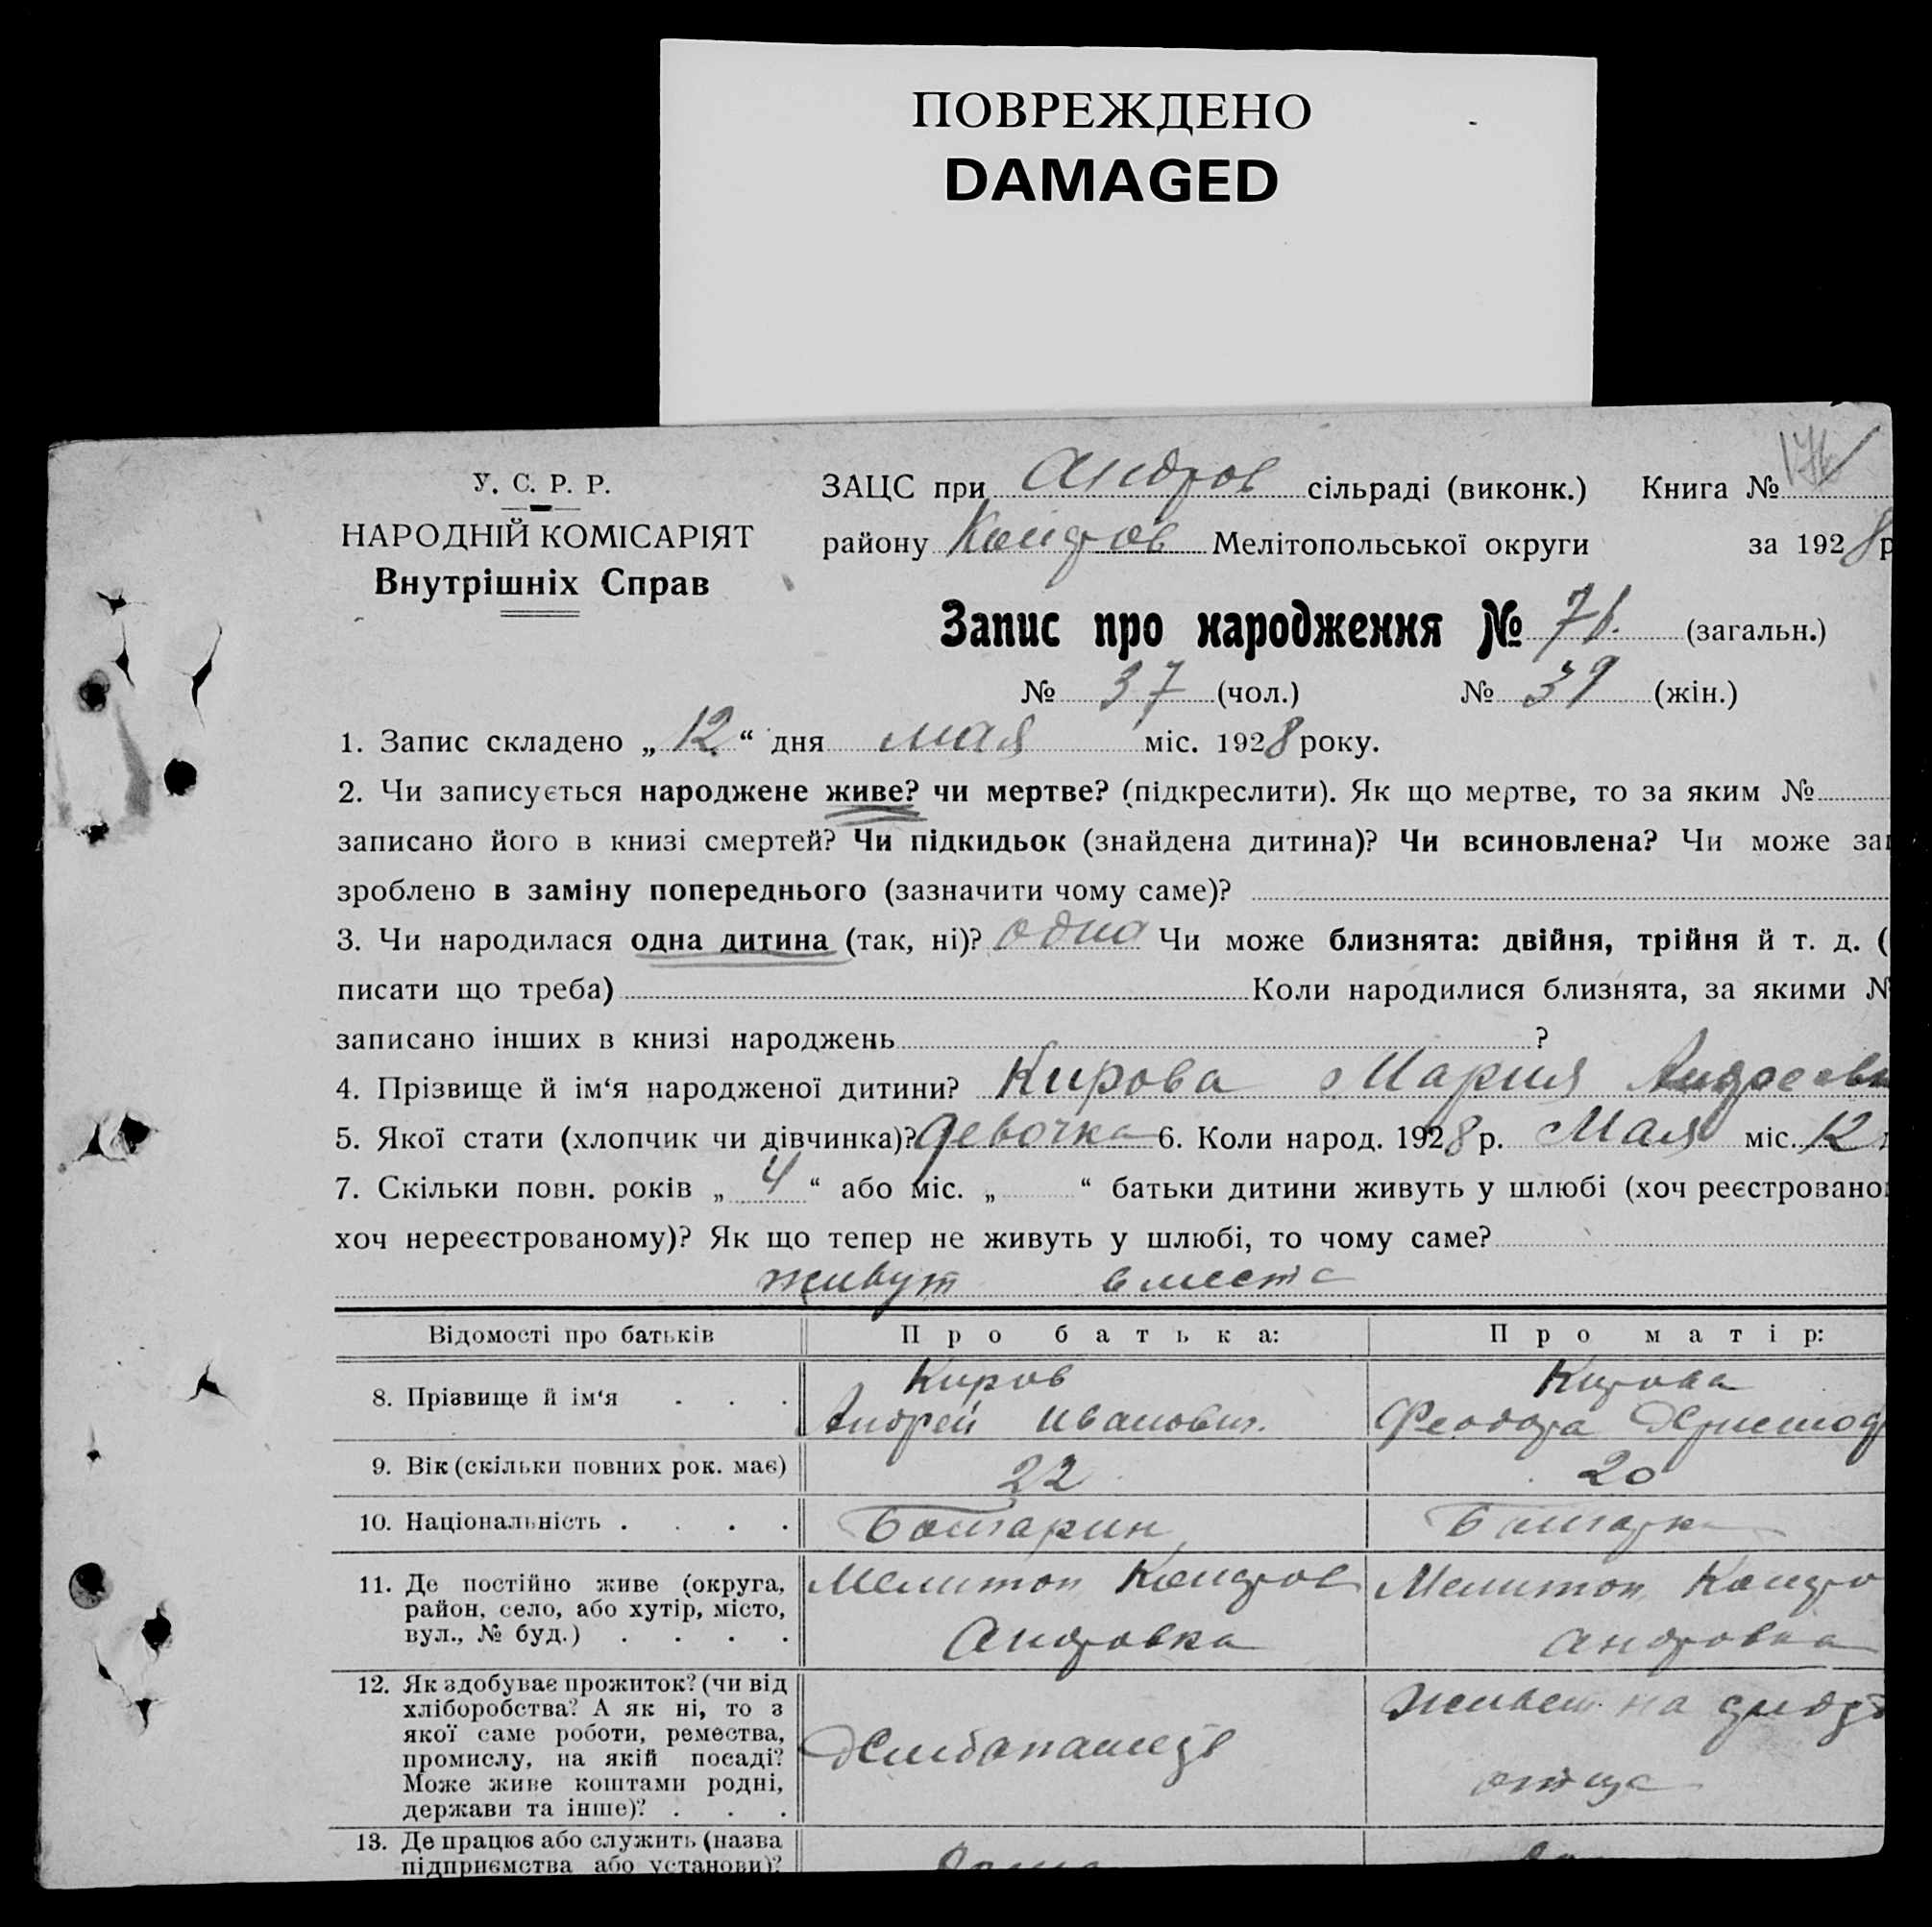 ПОВРЕЖДЕНО
DAMAGED
176
У. С. Р. Р.
НАРОДНІЙ КОМІСАРІЯТ
Внутрішніх Справ
ЗАЦС при Андров сільраді (виконк.) Книга №
району Мелітопольської округи за 1928 р
Запис про народження № 76. (загальн.)
№ 37 (чол.) № 39 (жін.)
1. Запис складено „ 12 “ дня мая міс. 1928 року.
2. Чи записується народжене живе? чи мертве? (підкреслити). Як що мертве, то за яким №
записано його в книзі смертей? Чи підкидьок (знайдена дитина)? Чи всиновлена? Чи може
зроблено в заміну попереднього (зазначити чому саме)?
3. Чи народилася одна дитина (так, ні)? одна Чи може близнята: двійня, трійня й т. д. (
писати що треба) Коли народилися близнята, за якими №
записано інших в книзі народжень ?
4. Прізвище й ім‘я народженої дитини? Кирова Мария Андреевн
5. Якої стати (хлопчик чи дівчинка)? девочка 6. Коли народ. 1928 р. Мая міс. 12
7. Скільки повн. років „ 4 “ або міс. „ “ батьки дитини живуть у шлюбі (хоч реєстровано
хоч нереєстрованому)? Як що тепер не живуть у шлюбі, то чому саме?
живут вместе
Відомості про батьків Про батька: Про матір:
8. Прізвище й ім‘я . . . Киров Кирова
Андрей Иванович. Феодора Христоф
9. Вік (скільки повних рок. має) 22 20
10. Національність . . . . Болгарин Болгарка
11. Де постійно живе (округа, район, село, або хутір, місто, вул., № буд.) . . . . Мелитоп Мелитоп
Андровка Андровка
12. Як здобуває прожиток? (чи від
хліборобства? А як ні, то з
якої саме роботи, ремества,
промислу, на якій посаді?
Може живе коштами родні,
держави та інше)? . . .
Хлибопашец
Живет на
отца
13. Де працює або служить (назва
підприємства або установи)?